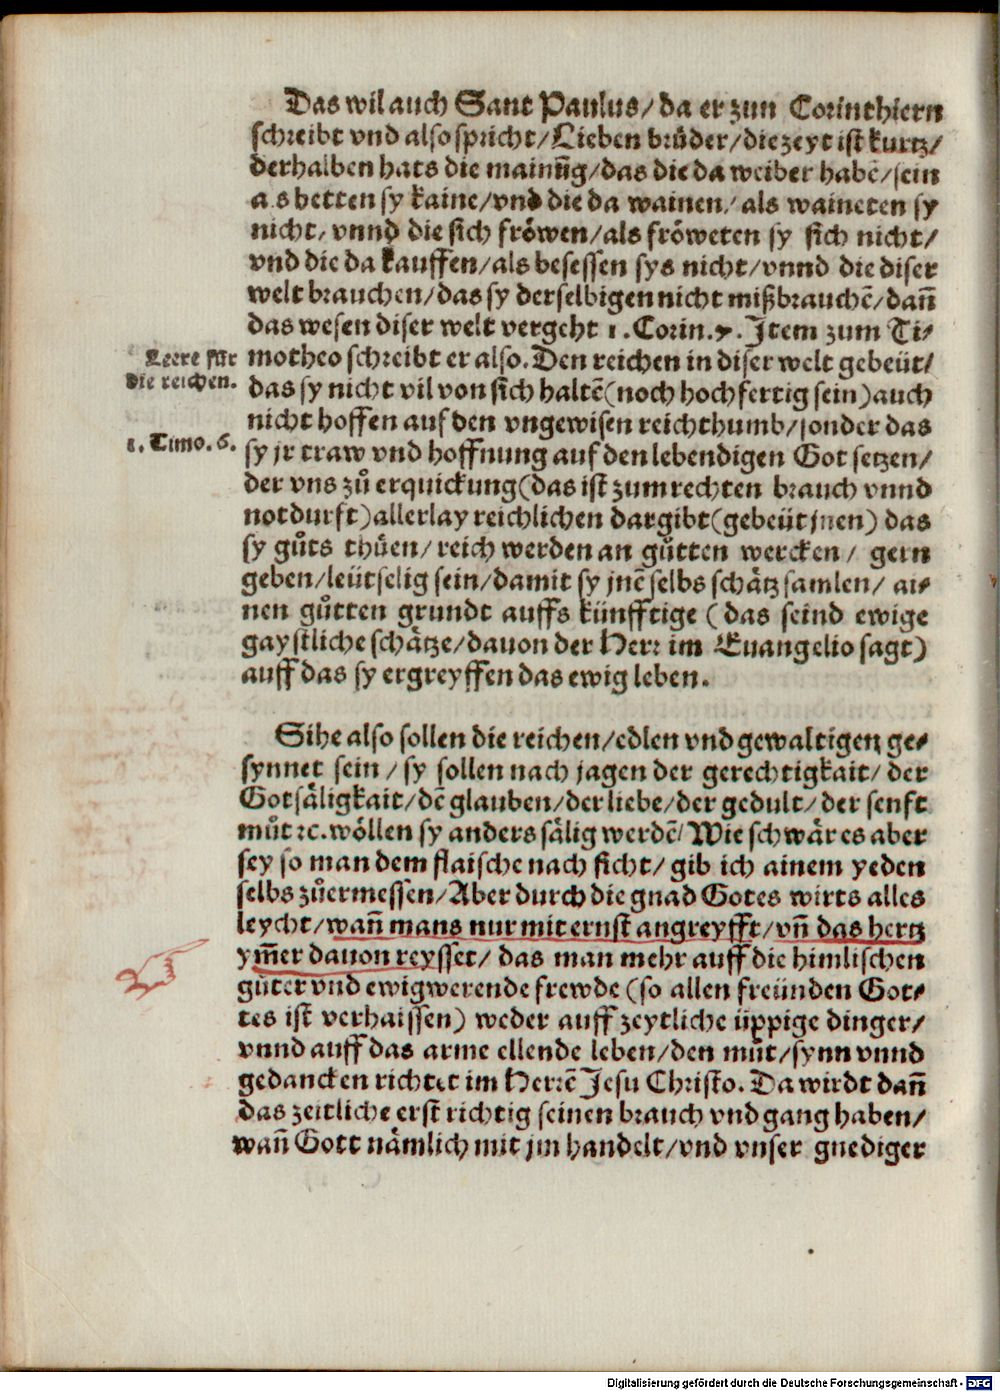 Das wil auch Sant Paulus/ da er zun Corinthiern
schreibt vnd also spricht/ Lieben bruͤder/ die zeyt ist kurtz/
derhalben hats die mainūg/ das die da weiber habē/ sein
a s hetten sy kaine/ vnd die da wainen/ als waineten sy
nicht/ vnnd die sich froͤwen/ als froͤweten sy sich nicht/
vnd die da kauffen/ als besessen sys nicht/ vnnd die diser
welt brauchen/ das sy derselbigen nicht mißbrauchē/ dañ
das wesen diser welt vergeht 1. Corin. 7. Item zum Ti⸗
Leere für
die reichen.
motheo schreibt er also. Den reichen in diser welt gebeüt/
das sy nicht vil von sich haltē (noch hochfertig sein) auch
nicht hoffen auf den vngewisen reichthumb/ sonder das
1. Timo. 6.
sy jr traw vnd hoffnung auf den lebendigen Got setzen/
der vns zuͦ erquickung (das ist zum rechten brauch vnnd
notdurft) allerlay reichlichen dargibt (gebeüt jnen) das
sy guͦts thuͤen/ reich werden an guͦtten wercken/ gern
geben/ leütselig sein/ damit sy jnē selbs schaͤtz samlen/ ai⸗
nen guͦtten grundt auffs künfftige (das seind ewige
gaystliche schaͤtze/ dauon der Herr im Euangelio sagt)
auff das sy ergreyffen das ewig leben.
Sihe also sollen die reichen/ edlen vnd gewaltigen ge⸗
synnet sein/ sy sollen nach jagen der gerechtigkait/ der
Gotsaͤligkait/ dē glauben/ der liebe/ der gedult/ der senft
muͦt ꝛc. woͤllen sy anders saͤlig werdē/ Wie schwaͤr es aber
sey so man dem flaische nach sicht/ gib ich ainem yeden
selbs zuͦermessen/ Aber durch die gnad Gotes wirts alles
leycht/ wañ mans nur mit ernst angreyfft/ vñ das hertz
ym̄er dauon reysset/ das man mehr auff die himlischen
guͤter vnd ewigwerende frewde (so allen freünden Got⸗
tes ist verhaissen) weder auff zeytliche üppige dinger/
vnnd auff das arme ellende leben/ den muͦt/ synn vnnd
gedancken richtet im Herrē Jesu Christo. Da wirdt dañ
das zeitliche erst richtig seinen brauch vnd gang haben/
wañ Gott naͤmlich mit jm handelt/ vnd vnser gnediger
Digitalisierung gefördert durch die Deutsche Forschungsgemeinschaft - DFG